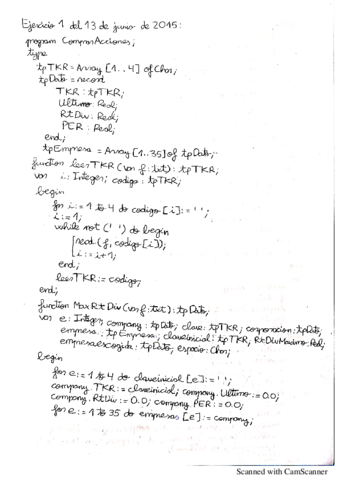 Ejercicio 1 del 13 de junio de 2015:
program ComprarAcciones;
type
tpTKR = Array [1..4] of Char;
tpDato = record
TKR: tpTKR;
Ultimo: Real;
RtDiv: Real;
PER: Real;
end;
tpEmpresa = Array [1..35] of tpDato;
function leerTKR (var f: text): tpTKR;
var i: Integer; codigo: tpTKR;
begin
for i:= 1 to 4 do codigo [i]:= ' ';
i:= 1;
while not (' ') do begin
read (f, codigo[i]);
i:= i+1;
end;
leerTKR:= codigo;
end;
function MaxRtDiv (var f: text): tpDato;
var e: Integer; company: tpDato; clave: tpTKR; comparacion: tpDato;
empresa: tpEmpresa; claveinicial: tpTKR; RtDivMaximo: Real;
empresaescogida: tpDato; espacio: Char;
begin
for e:= 1 to 4 do claveinicial [e]:= ' ';
company. TKR:= claveinicial; company. Ultimo:= 0.0;
company. RtDiv:= 0.0; company. PER:= 0.0;
for e:= 1 to 35 do empresas [e]:= company;
Scanned with CamScanner